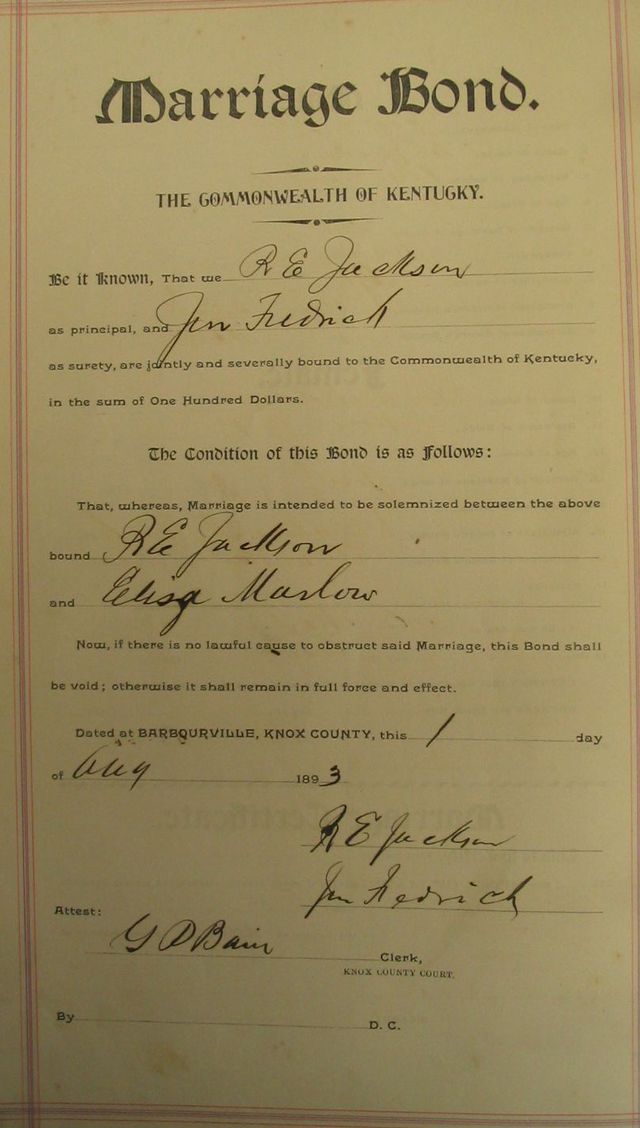 Marriage Bond.
THE COMMONWEALTH OF KENTUCKY.
Be it Known, That we R E Jackson
as principal, and Jim Fredrick
as surety, are jointly and severally bound to the Commonwealth of Kentucky,
in the sum of One Hundred Dollars.
The Condition of this Bond is as Follows:
That, whereas, Marriage is intended to be solemnized between the above
bound R E Jackson
and Eliza Marlow
Now, if there is no lawful cause to obstruct said Marriage, this Bond shall
be void; otherwise it shall remain in full force and effect.
Dated at BARBOURVILLE, KNOX COUNTY, this 1 day
of Aug 1893
R E Jackson
Jim Fredrick
Attest:
G D Bain Clerk,
KNOX COUNTY COURT.
By D. C.